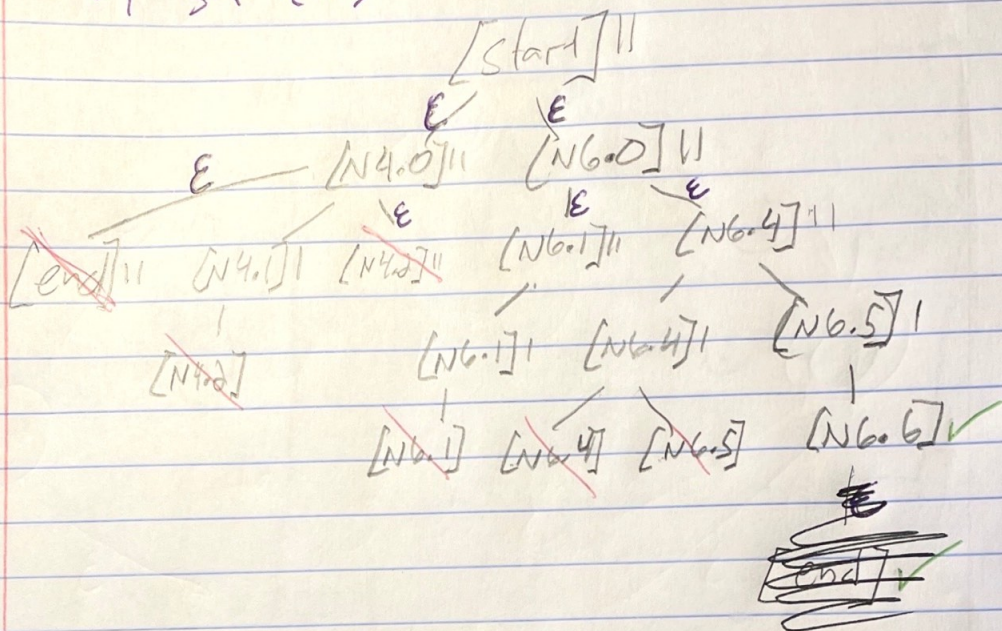 [start]11
ε ε
[N4.0]11 [N6.0]11
ε ε ε ε
[end]11 [N4.1]1 [N4.2]11 [N6.1]11 [N6.4]11
[N4.2] [N6.1]1 [N6.4]1 [N6.5]1
[N6.1] [N6.4] [N6.5] [N6.6]✓
ε
[end]✓